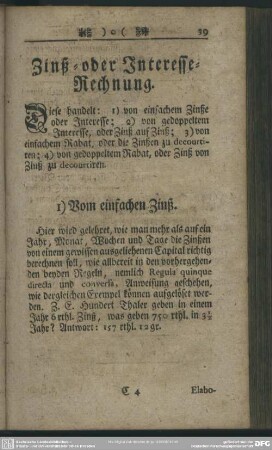 ) o ( 39
Zinß- oder Interesse-
Rechnung.
Diese handelt: 1) von einfachem Zinße
oder Interesse; 2) von gedoppeltem
Interesse, oder Zinß auf Zinß; 3) von
einfachem Rabat, oder die Zinßen zu decourti-
ren; 4) von gedoppeltem Rabat, oder Zinß von
Zinß zu decourtiren.
1) Vom einfachen Zinß.
Hier wird gelehret, wie man mehr als auf ein
Jahr, Monat, Wochen und Tage die Zinßen
von einem gewissen ausgeliehenen Capital richtig
berechnen soll, wie allbereit in den vorhergehen-
den beyden Regeln, nemlich Regula quinque
directa und conversa, Anweisung geschehen,
wie dergleichen Exempel können aufgelöset wer-
den. Z. E. Hundert Thaler geben in einem
Jahr 6 rthl. Zinß, was geben 750 rthl. in 3½
Jahr? Antwort: 157 rthl. 12 gr.
C 4 Elabo-